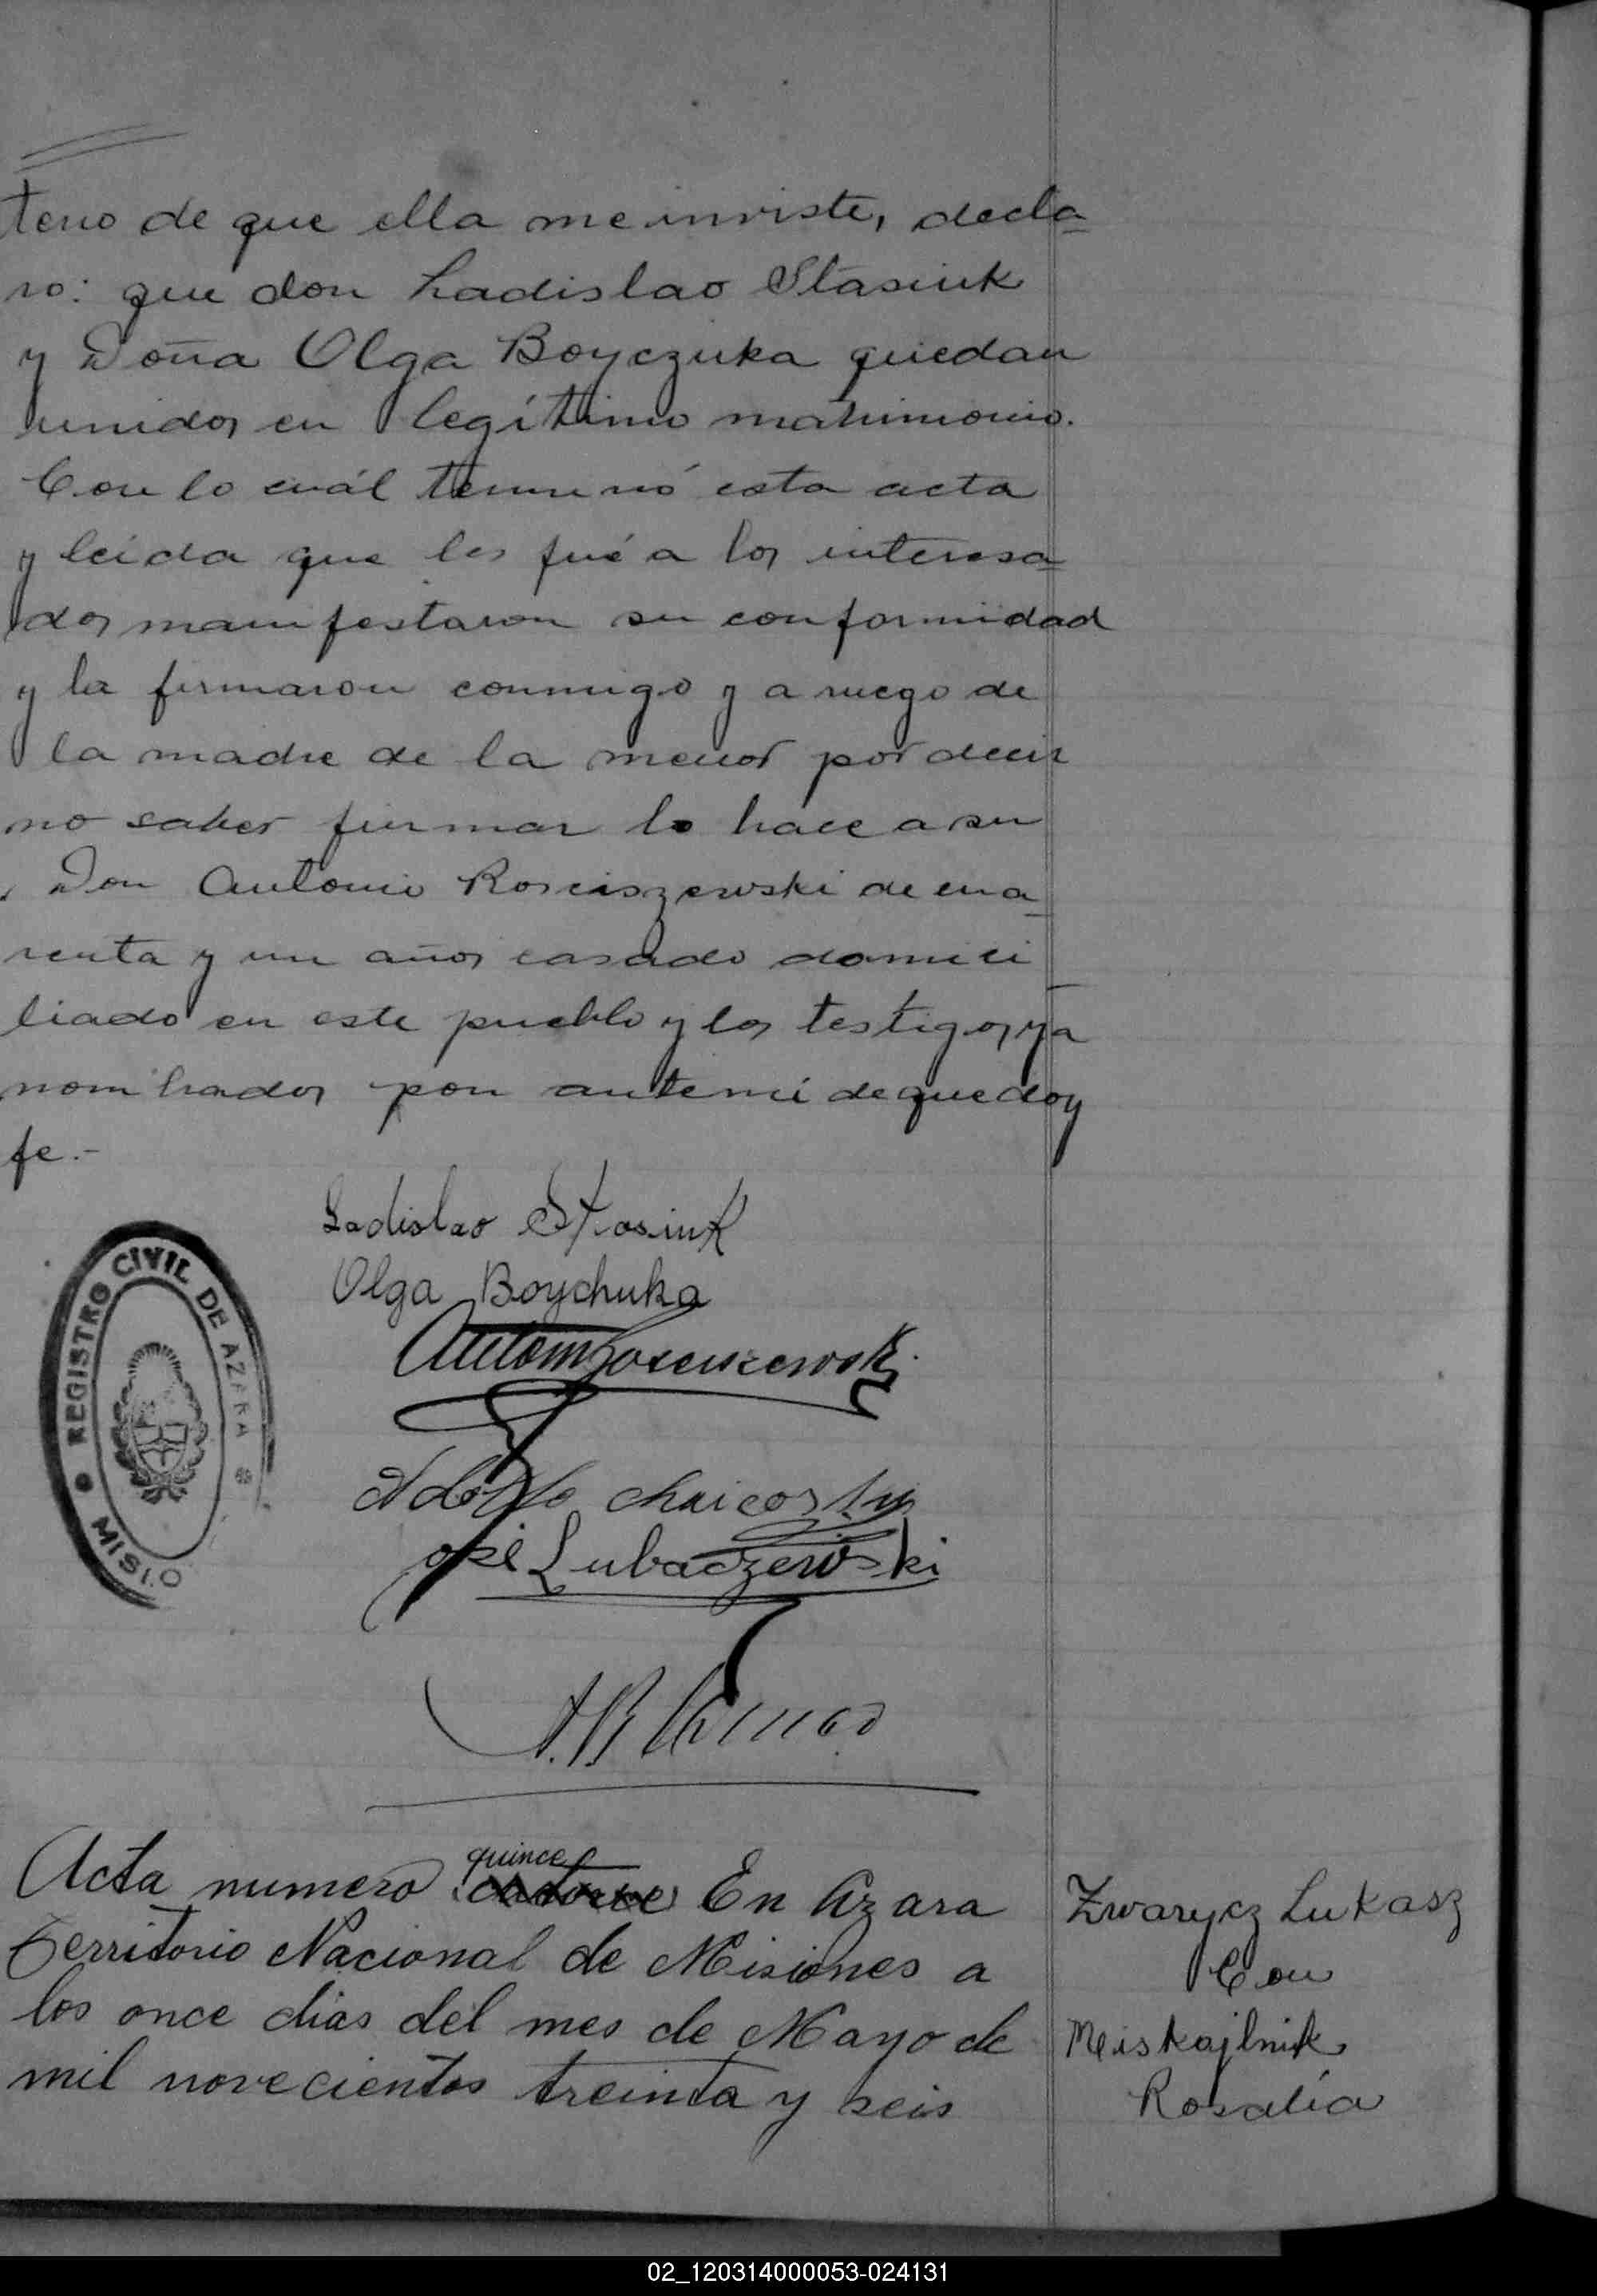 teno de que ella me inviste, decla-
ro: que don Ladislao Stasiuk
y Doña Olga Boyczuka quedan
unidos en legítimo matrimonio.
Con lo cuál terminó esta acta
y leida que les fué a los interesa-
dos manifestaron su conformidad
y la firmaron conmigo y a ruego de
la madre de la menor por decir
no saber firmar lo hace a su
Don Antonio Rosciszewski de cua-
renta y un años casado domici-
liado en este pueblo y los testigos ya
nombrados por ante mi de que doy
fe.-
Ladislao Stasiuk
Olga Boychuka
REGISTRO CIVIL DE AZARA
MISIO
José Lubaczewski
Acta numero catorce quince En Azara
Territorio Nacional de Misiones a
los once dias del mes de Mayo de
mil novecientos treinta y seis
Zwarycz Lukasz
Con
Meiskajlnik
Rosalía
02_120314000053-024131